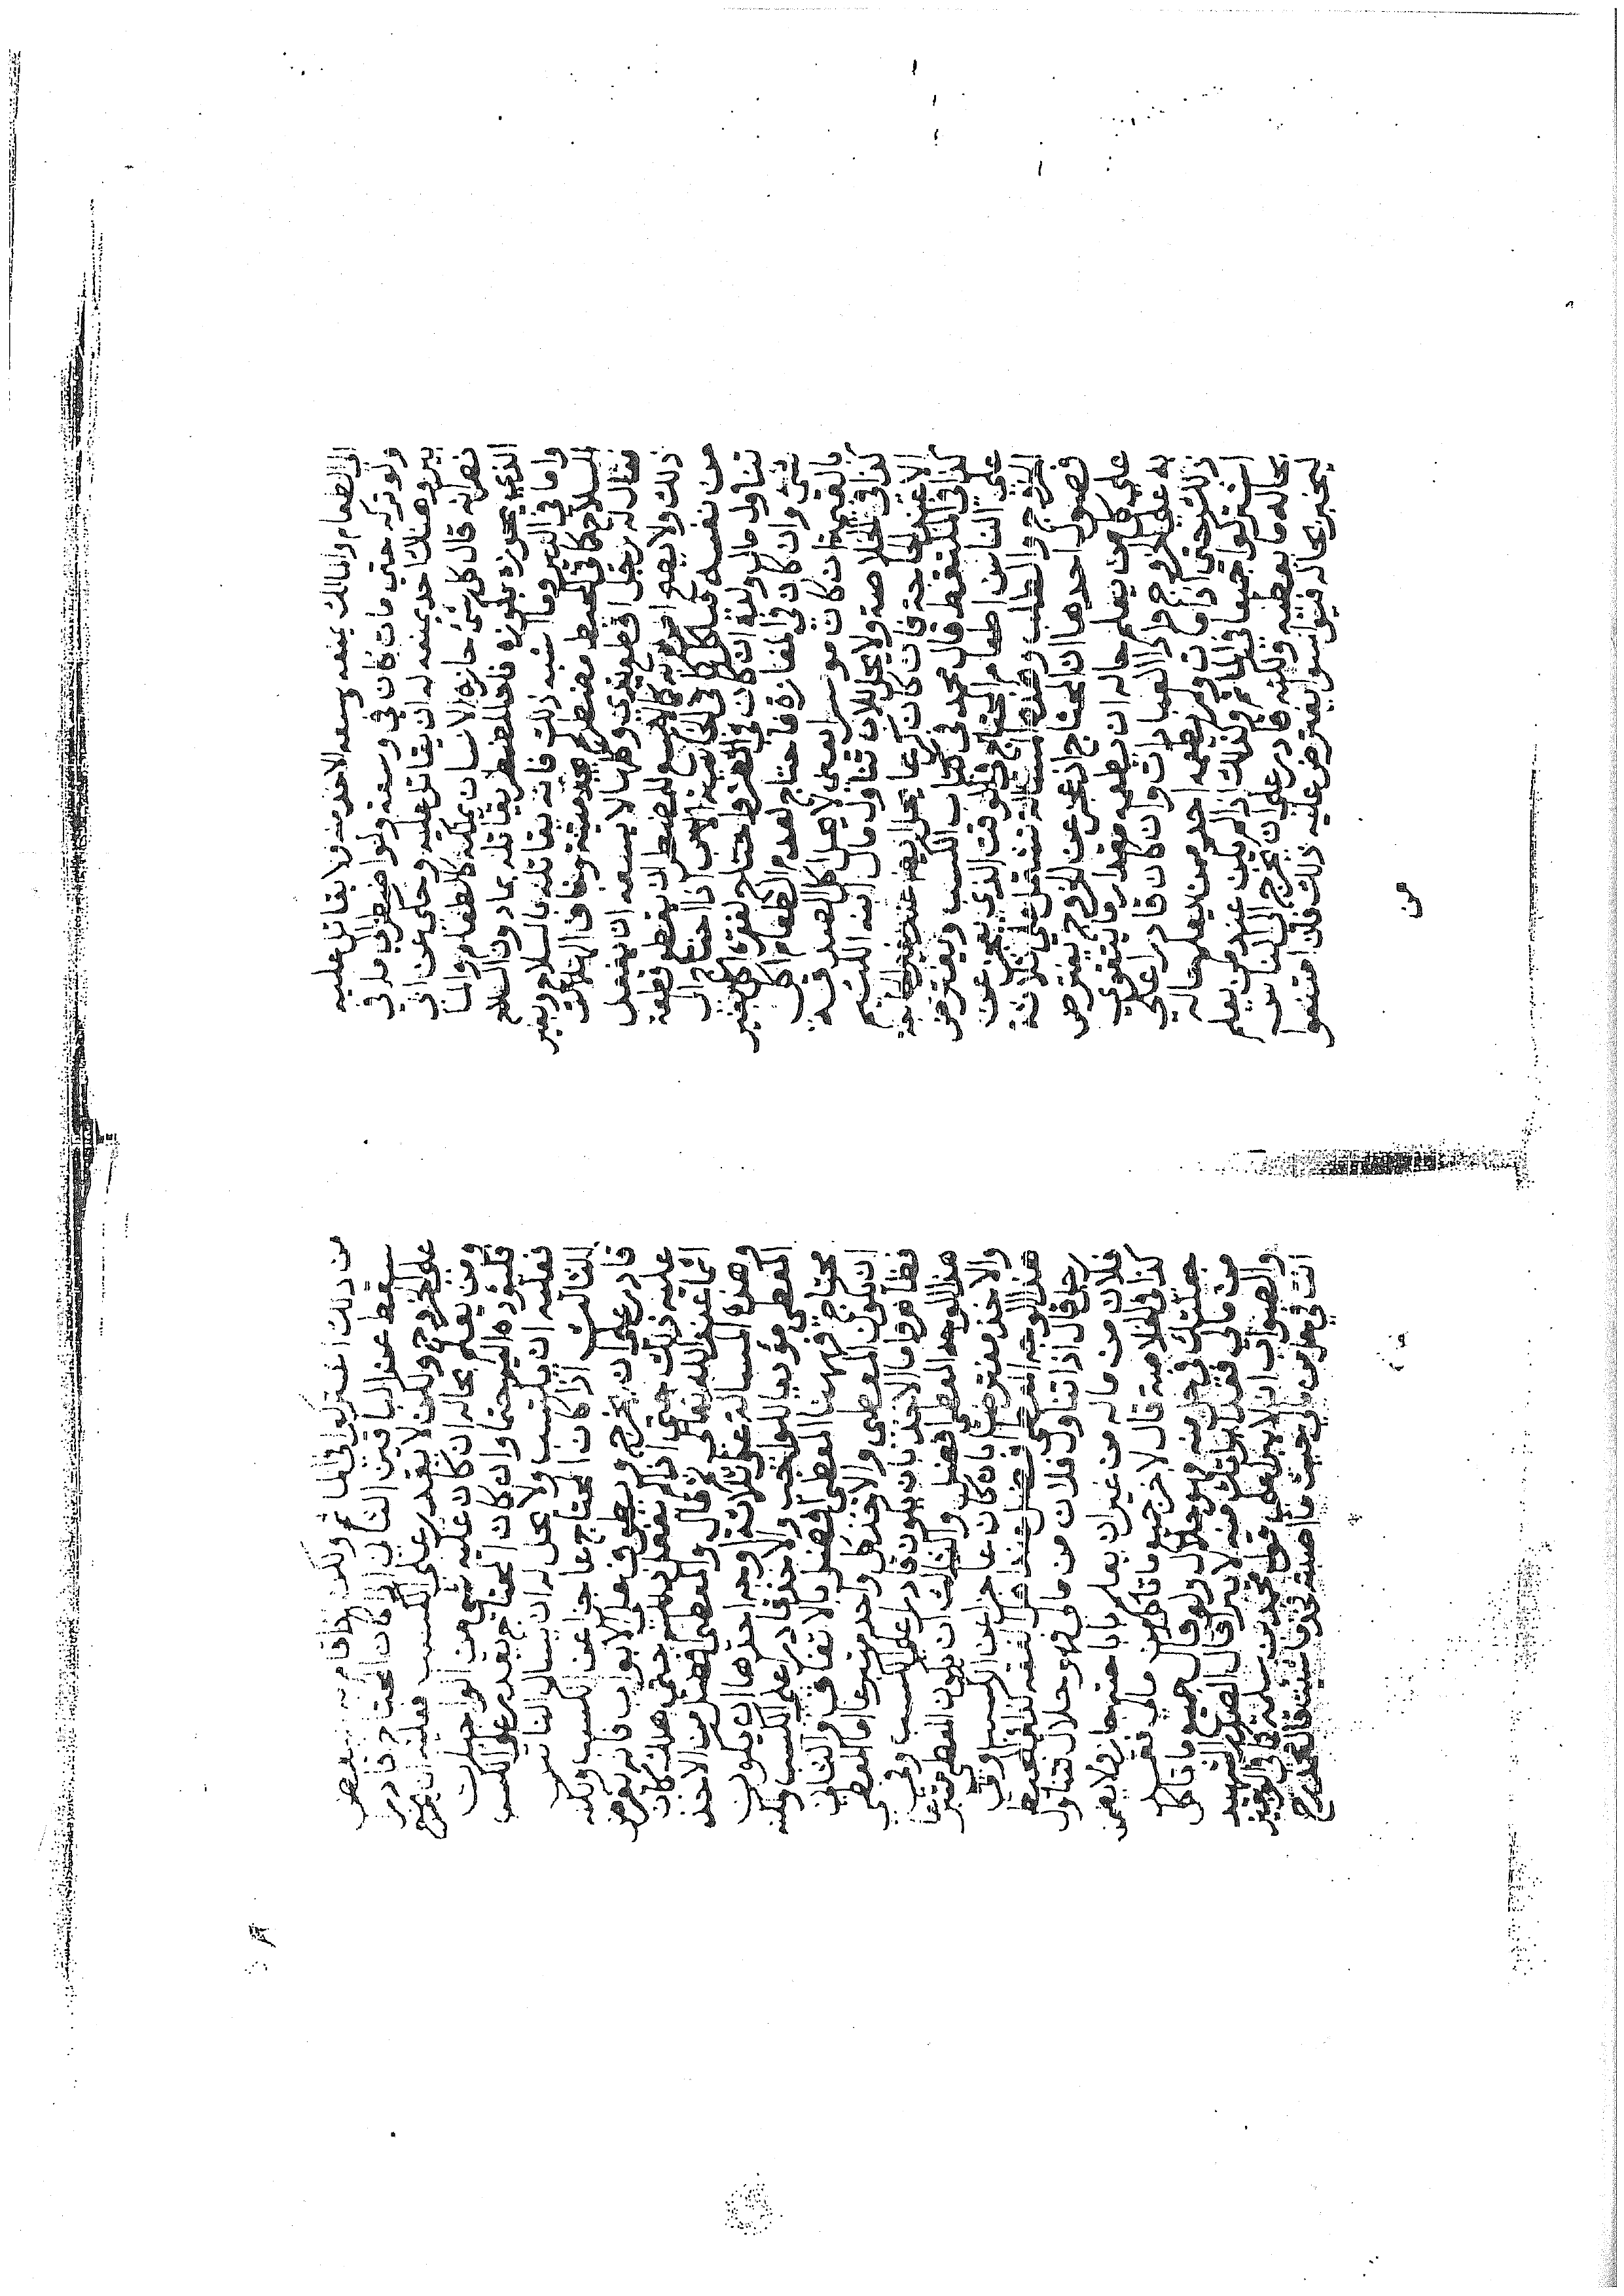 الى الطعام والمالك يمنعه وسعه الاخذ منه ولا يقاتل عليه
ولو تركه حتى مات كان في وسعه ولو اضطر الى ما في
بير وهناك احد يمنعه له ان يقاتل عليه وحكى عن ابي
نصر انه قال كل شئ حازه الانسان يملكه كالطعام والما
الذي يحوزه بكوزه فالمضطر يقاتله بما دون السلاح
واما في البير وما اشبه ذلك فانه يقاتله بالسلاح وبغير
السلاح كما في المحيط مضطر لم يجد ميتة وخاف الهلاك
فقال له رجل اقطع يدي وكلها لا يسعه ان يفعل
ذلك ولا يصح امره به كما لا يسع للمضطر ان يقطع قطعة
من نفسه فياكل كما في الاب اذا احتاج الى
تناول مال ولده ان كان في المصر واحتاج لفقره اكل بغير
شئ وان كان في المفازة فاحتاج لعدم الطعام اكل
بالقيمة ان كان موسرا يعني لا يحل اكل الصدقة
كذا في الخلاصة ولا يحل للاب تناول مال ابنه الكبير
الا عند الحاجة فان كان كريما يحل ايضا عند غير الحاجة
كذا في الملتقط قال محمد في كتاب الكسب ويفترض
على الناس اطعام المحتاج في الوقت الذي يعجز عن
الخروج والطلب وهذه المسالة تشتمل على ثلاثة
فصول احدها ان المحتاج اذا عجز عن الخروج يفترض
على كل من يعلم حاله ان يطعمه مقدار ما يتقوى
به على الخروج واداء العبادات وان كان قادرا على
ذلك حتى اذا مات ولم يطعمه احد ممن يعلم بحاله
اشتركوا جميعا في الماثم وكذلك اذا لم يكن عند من يعلم
بحاله ما يعطيه ولكنه قادر على ان يخرج الى الناس
يخبر بحاله فيواسوه يفترض عليه ذلك فان امتنعوا
من
من ذلك اشتركوا في الماثم ولكن اذا قام به بعض
سقط عن الباقين الثاني اذا كان المحتاج قادر
على الخروج ولكن لا يقدر على الكسب فعليه ان يخرج
ومن يعلم بحاله ان كان عليه شئ من الواجبات
فليؤده اليه حتما وان كان المحتاج يقدر على الكسب
فعليه ان يكتسب ولا يحل له ان يسال الناس
الثالث اذا كان المحتاج عاجزا عن الكسب ولكنه
قادر على ان يخرج ويطوف على الابواب فانه يفرض
عليه ذلك حتى اذا لم يفعل ذلك حتى هلك كان
اثما عند الله تعالى ثم قال والمعطى افضل من الاخذ
وهذه المسالة على ثلاثة اوجه احدها ان يكون
المعطي مؤديا للواجب والاخذ قادر على الكسب ولكنه
محتاج فههنا المعطي افضل بالاتفاق والثاني
ان يكون المعطي والاخذ كل واحد متبرعا اما المعطي
فظاهر واما الاخذ بان يكون قادر على الكسب وفي
هذا الوجه المعطي افضل والثالث ان يكون المعطي متبرعا
والاخذ مفترضا بان كان عاجزا عن الكسب وفي
هذا الوجه الاخذ افضل عند اهل الفقه كذا في المحيط
رجل قال اذا تناول فلان من مالي فهو حلال فتناول
فلان من ماله من غير ان يعلم باباحته جاز ولا يضمن
كذا في الخلاصة قال لاخر جميع ما تاكل من مالي فقد
جعلتك في حل منه فهو حلال ولو قال جميع ما تاكل
من مالي فقد ابراتك منه لا يبرا قال الصدر الشهيد
والصواب انه يبرا على قول محمد بن سلمة كما في الوجيز
انت في حل من مالي حيث ما اصبته فخذ ما شئت قال محمد رح